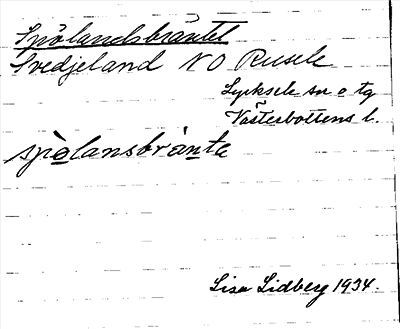 Spölandsbräntet
Svedjeland NO Rusele
Lycksele sn o tg
Västerbottens l.
spölansbränta
Lisa Lidberg 1934.